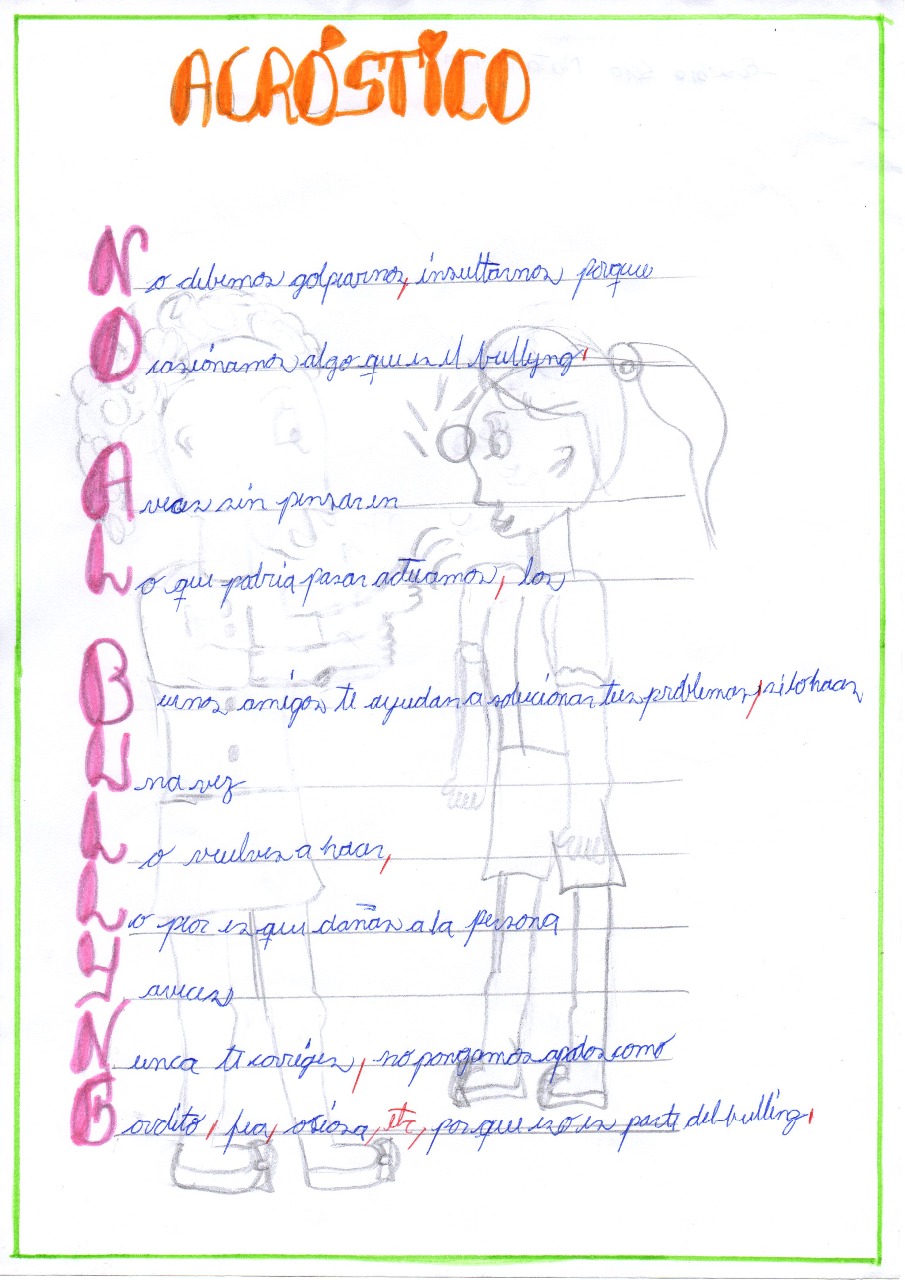 ACRÓSTICO
No debemos golpiarnos, insultarnos porque
Ocasiónamos algo que es el bullyng,
A veces sin pensar en
Lo que podria pasar actuamos, los
Buenos amigos te ayudan a solucionar tus problemas, si lo haces
Una vez
Lo vuelves a hacer,
Lo pior es que dañas a la persona
Y aveces
Nunca te corriges, no pongamos apodos como
Gordito, fea, osiosa, etc, porque eso es parte del bulling,